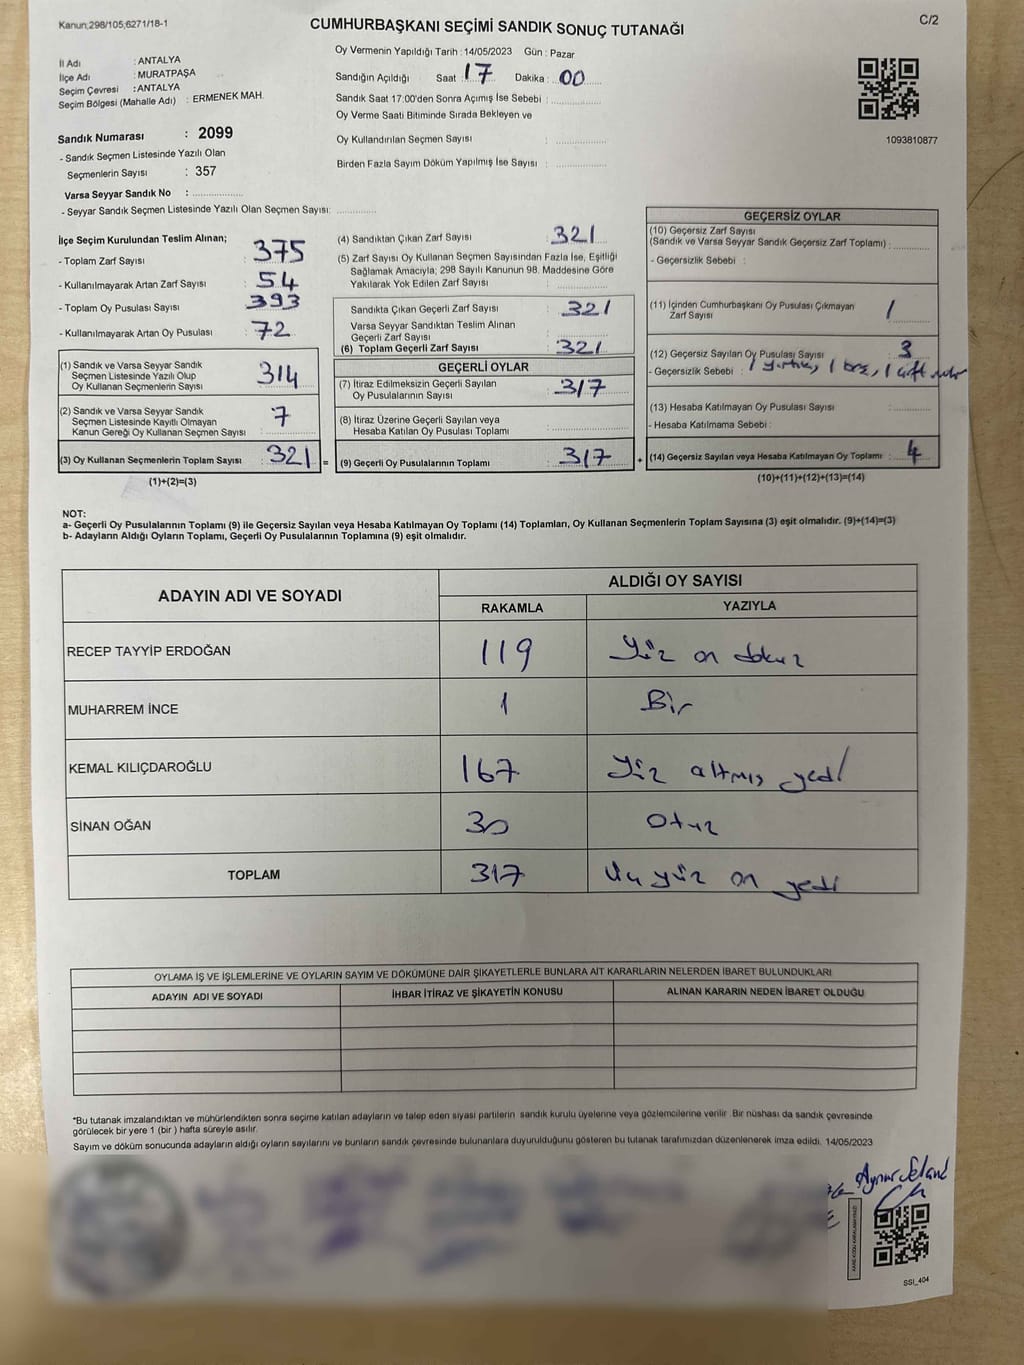 Kanun;298/105,6271/18-1
CUMHURBAŞKANI SEÇİMİ SANDIK SONUÇ TUTANAĞI
C/2
İl Adı : ANTALYA
İlçe Adı : MURATPAŞA
Seçim Çevresi : ANTALYA
Seçim Bölgesi (Mahalle Adı) : ERMENEK MAH.
Sandık Numarası : 2099
- Sandık Seçmen Listesinde Yazılı Olan
Seçmenlerin Sayısı : 357
Varsa Seyyar Sandık No :
- Seyyar Sandık Seçmen Listesinde Yazılı Olan Seçmen Sayısı:
Oy Vermenin Yapıldığı Tarih : 14/05/2023 Gün : Pazar
Sandığın Açıldığı Saat : 17 Dakika : 00
Sandık Saat 17:00'den Sonra Açımış İse Sebebi :
Oy Verme Saati Bitiminde Sırada Bekleyen ve
Oy Kullandırılan Seçmen Sayısı :
Birden Fazla Sayım Döküm Yapılmış İse Sayısı :
1093810877
İlçe Seçim Kurulundan Teslim Alınan;
- Toplam Zarf Sayısı : 375
- Kullanılmayarak Artan Zarf Sayısı : 54
- Toplam Oy Pusulası Sayısı : 393
- Kullanılmayarak Artan Oy Pusulası : 72
(1) Sandık ve Varsa Seyyar Sandık
Seçmen Listesinde Yazılı Olup
Oy Kullanan Seçmenlerin Sayısı : 314
(2) Sandık ve Varsa Seyyar Sandık
Seçmen Listesinde Kayıtlı Olmayan
Kanun Gereği Oy Kullanan Seçmen Sayısı : 7
(3) Oy Kullanan Seçmenlerin Toplam Sayısı : 321 =
(1)+(2)=(3)
(4) Sandıktan Çıkan Zarf Sayısı : 321
(5) Zarf Sayısı Oy Kullanan Seçmen Sayısından Fazla İse, Eşitliği
Sağlamak Amacıyla; 298 Sayılı Kanunun 98. Maddesine Göre
Yakılarak Yok Edilen Zarf Sayısı :
Sandıkta Çıkan Geçerli Zarf Sayısı : 321
Varsa Seyyar Sandıktan Teslim Alınan
Geçerli Zarf Sayısı :
(6) Toplam Geçerli Zarf Sayısı : 321
GEÇERLİ OYLAR
(7) İtiraz Edilmeksizin Geçerli Sayılan
Oy Pusulalarının Sayısı : 317
(8) İtiraz Üzerine Geçerli Sayılan veya
Hesaba Katılan Oy Pusulası Toplamı :
(9) Geçerli Oy Pusulalarının Toplamı : 317 +
GEÇERSİZ OYLAR
(10) Geçersiz Zarf Sayısı
(Sandık ve Varsa Seyyar Sandık Geçersiz Zarf Toplamı) :
- Geçersizlik Sebebi :
(11) İçinden Cumhurbaşkanı Oy Pusulası Çıkmayan
Zarf Sayısı : 1
(12) Geçersiz Sayılan Oy Pusulası Sayısı : 3
- Geçersizlik Sebebi : 1 yırtık, 1 boş, 1 çift
(13) Hesaba Katılmayan Oy Pusulası Sayısı :
- Hesaba Katılmama Sebebi :
(14) Geçersiz Sayılan veya Hesaba Katılmayan Oy Toplamı : 4
(10)+(11)+(12)+(13)=(14)
NOT:
a- Geçerli Oy Pusulalarının Toplamı (9) ile Geçersiz Sayılan veya Hesaba Katılmayan Oy Toplamı (14) Toplamları, Oy Kullanan Seçmenlerin Toplam Sayısına (3) eşit olmalıdır. (9)+(14)=(3)
b- Adayların Aldığı Oyların Toplamı, Geçerli Oy Pusulalarının Toplamına (9) eşit olmalıdır.
ADAYIN ADI VE SOYADI
ALDIĞI OY SAYISI
RAKAMLA YAZIYLA
RECEP TAYYİP ERDOĞAN 119 Yüz on dokuz
MUHARREM İNCE 1 Bir
KEMAL KILIÇDAROĞLU 167 Yüz altmış yedi
SİNAN OĞAN 30 Otuz
TOPLAM 317 Üç yüz on yedi
OYLAMA İŞ VE İŞLEMLERİNE VE OYLARIN SAYIM VE DÖKÜMÜNE DAİR ŞİKAYETLERLE BUNLARA AİT KARARLARIN NELERDEN İBARET BULUNDUKLARI
ADAYIN ADI VE SOYADI İHBAR İTİRAZ VE ŞİKAYETİN KONUSU ALINAN KARARIN NEDEN İBARET OLDUĞU
*Bu tutanak imzalandıktan ve mühürlendikten sonra seçime katılan adayların ve talep eden siyasi partilerin sandık kurulu üyelerine veya gözlemcilerine verilir. Bir nüshası da sandık çevresinde
görülecek bir yere 1 (bir ) hafta süreyle asılır.
Sayım ve döküm sonucunda adayların aldığı oyların sayılarını ve bunların sandık çevresinde bulunanlara duyurulduğunu gösteren bu tutanak tarafımızdan düzenlenerek imza edildi. 14/05/2023
SSI_404